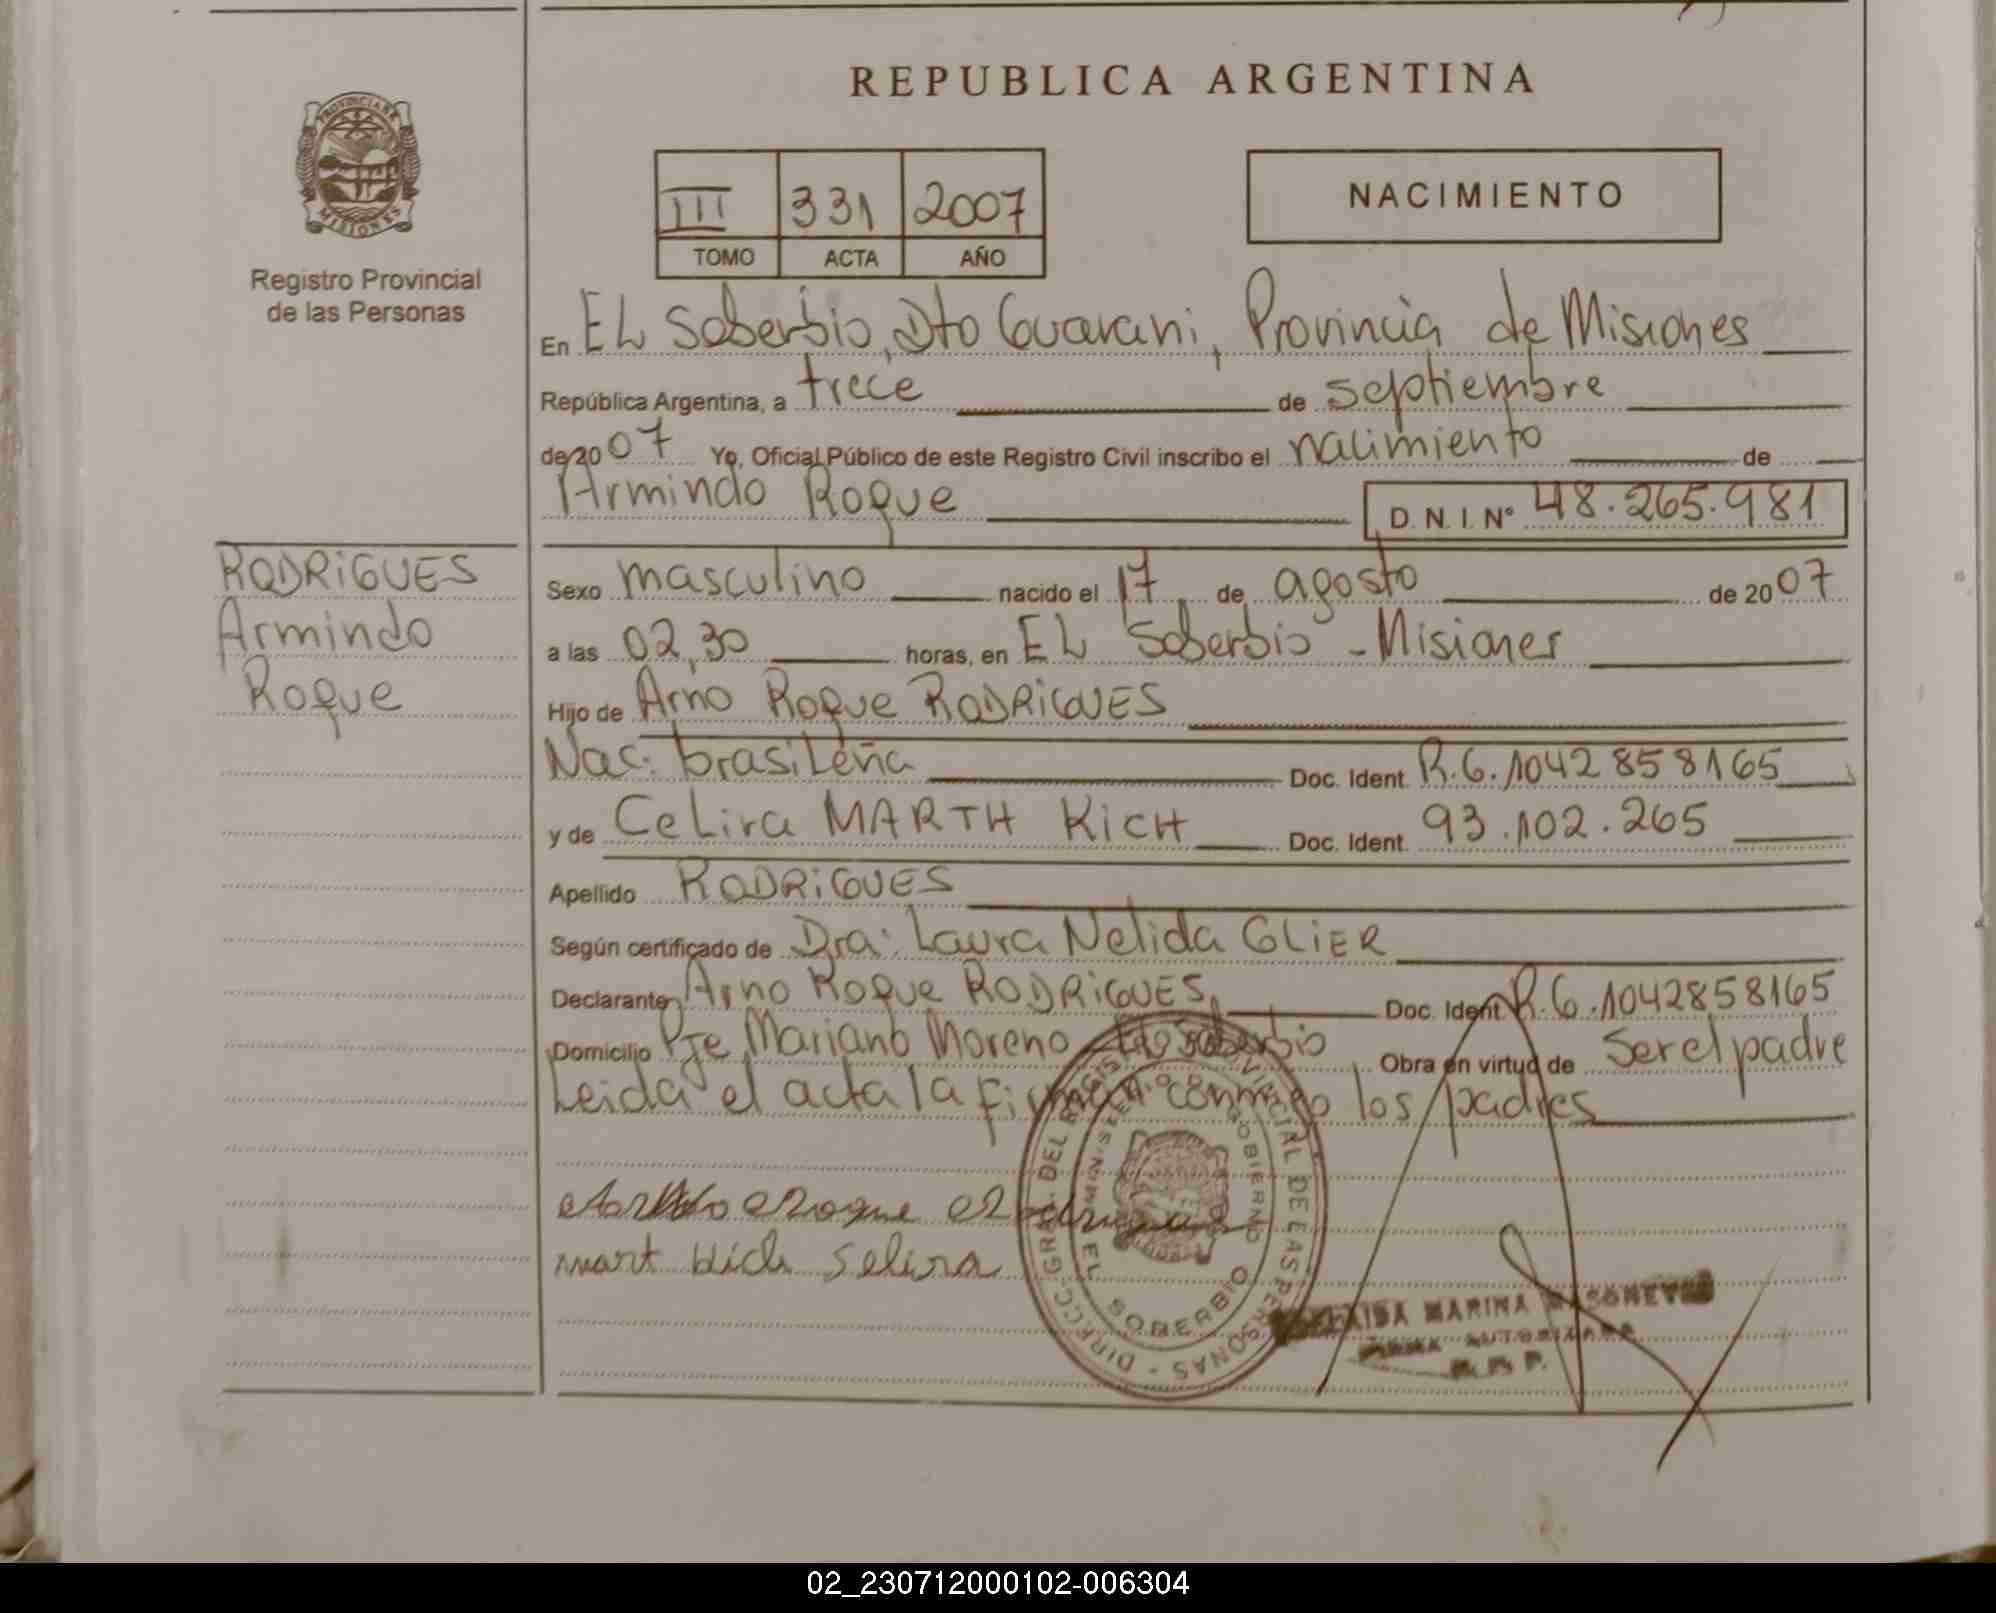 REPUBLICA ARGENTINA
PROVINCIA DE
MISIONES
Registro Provincial
de las Personas
III 331 2007
TOMO ACTA AÑO
NACIMIENTO
En EL Soberbio, Dto Guarani, Provincia de Misiones
República Argentina, a trece de septiembre
de 2007 Yo, Oficial Público de este Registro Civil inscribo el nacimiento de
Armindo Roque D.N.I. Nº 48.265.981
RODRiGUES
Armindo
Roque
Sexo masculino nacido el 17 de agosto de 2007
a las 02,30 horas, en EL Soberbio - Misiones
Hijo de Arno Roque RODRiGUES
Nac: brasiLeña Doc. Ident. R.G. 1042858165
y de CeLira MARTH KicH Doc. Ident. 93.102.265
Apellido RODRiGUES
Según certificado de Dra: Laura Nelida GLiER
Declarante Arno Roque RODRiGUES Doc. Ident. R.G. 1042858165
Domicilio Pje Mariano Moreno - EL Soberbio Obra en virtud de ser el padre
Leida el acta la firman conmigo los padres
Roque
mart kich selira
DIRECC. GRAL. DEL REGISTRO PROVINCIAL DE LAS PERSONAS -
EL SOBERBIO
MARINA
FIRMA AUTORIZADA
R. P. P.
02_230712000102-006304